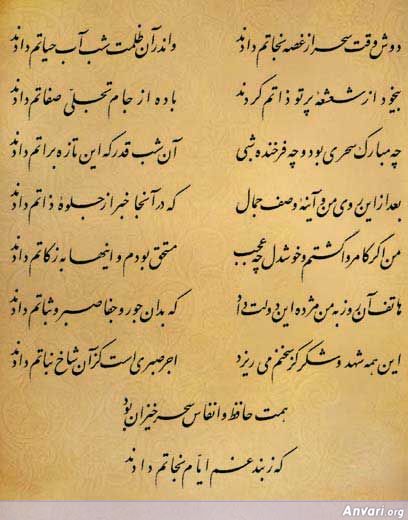 دوش وقت سحر از غصه نجاتم دادند واندر آن ظلمت شب آب حیاتم دادند
بیخود از شعشعه پرتو ذاتم کردند باده از جام تجلی صفاتم دادند
چه مبارک سحری بود و چه فرخنده شبی آن شب قدر که این تازه براتم دادند
بعد از این روی من و آینه وصف جمال که در آنجا خبر از جلوهٔ ذاتم دادند
من اگر کامروا گشتم و خوشدل چه عجب مستحق بودم و اینها به زکاتم دادند
هاتف آن روز به من مژده این دولت داد که بدان جور و جفا صبر و ثباتم دادند
این همه شهد و شکر کز سخنم می ریزد اجر صبری است کز آن شاخ نباتم دادند
همت حافظ و انفاس سحر خیزان بود
که ز بند غم ایام نجاتم دادند
Anvari.org